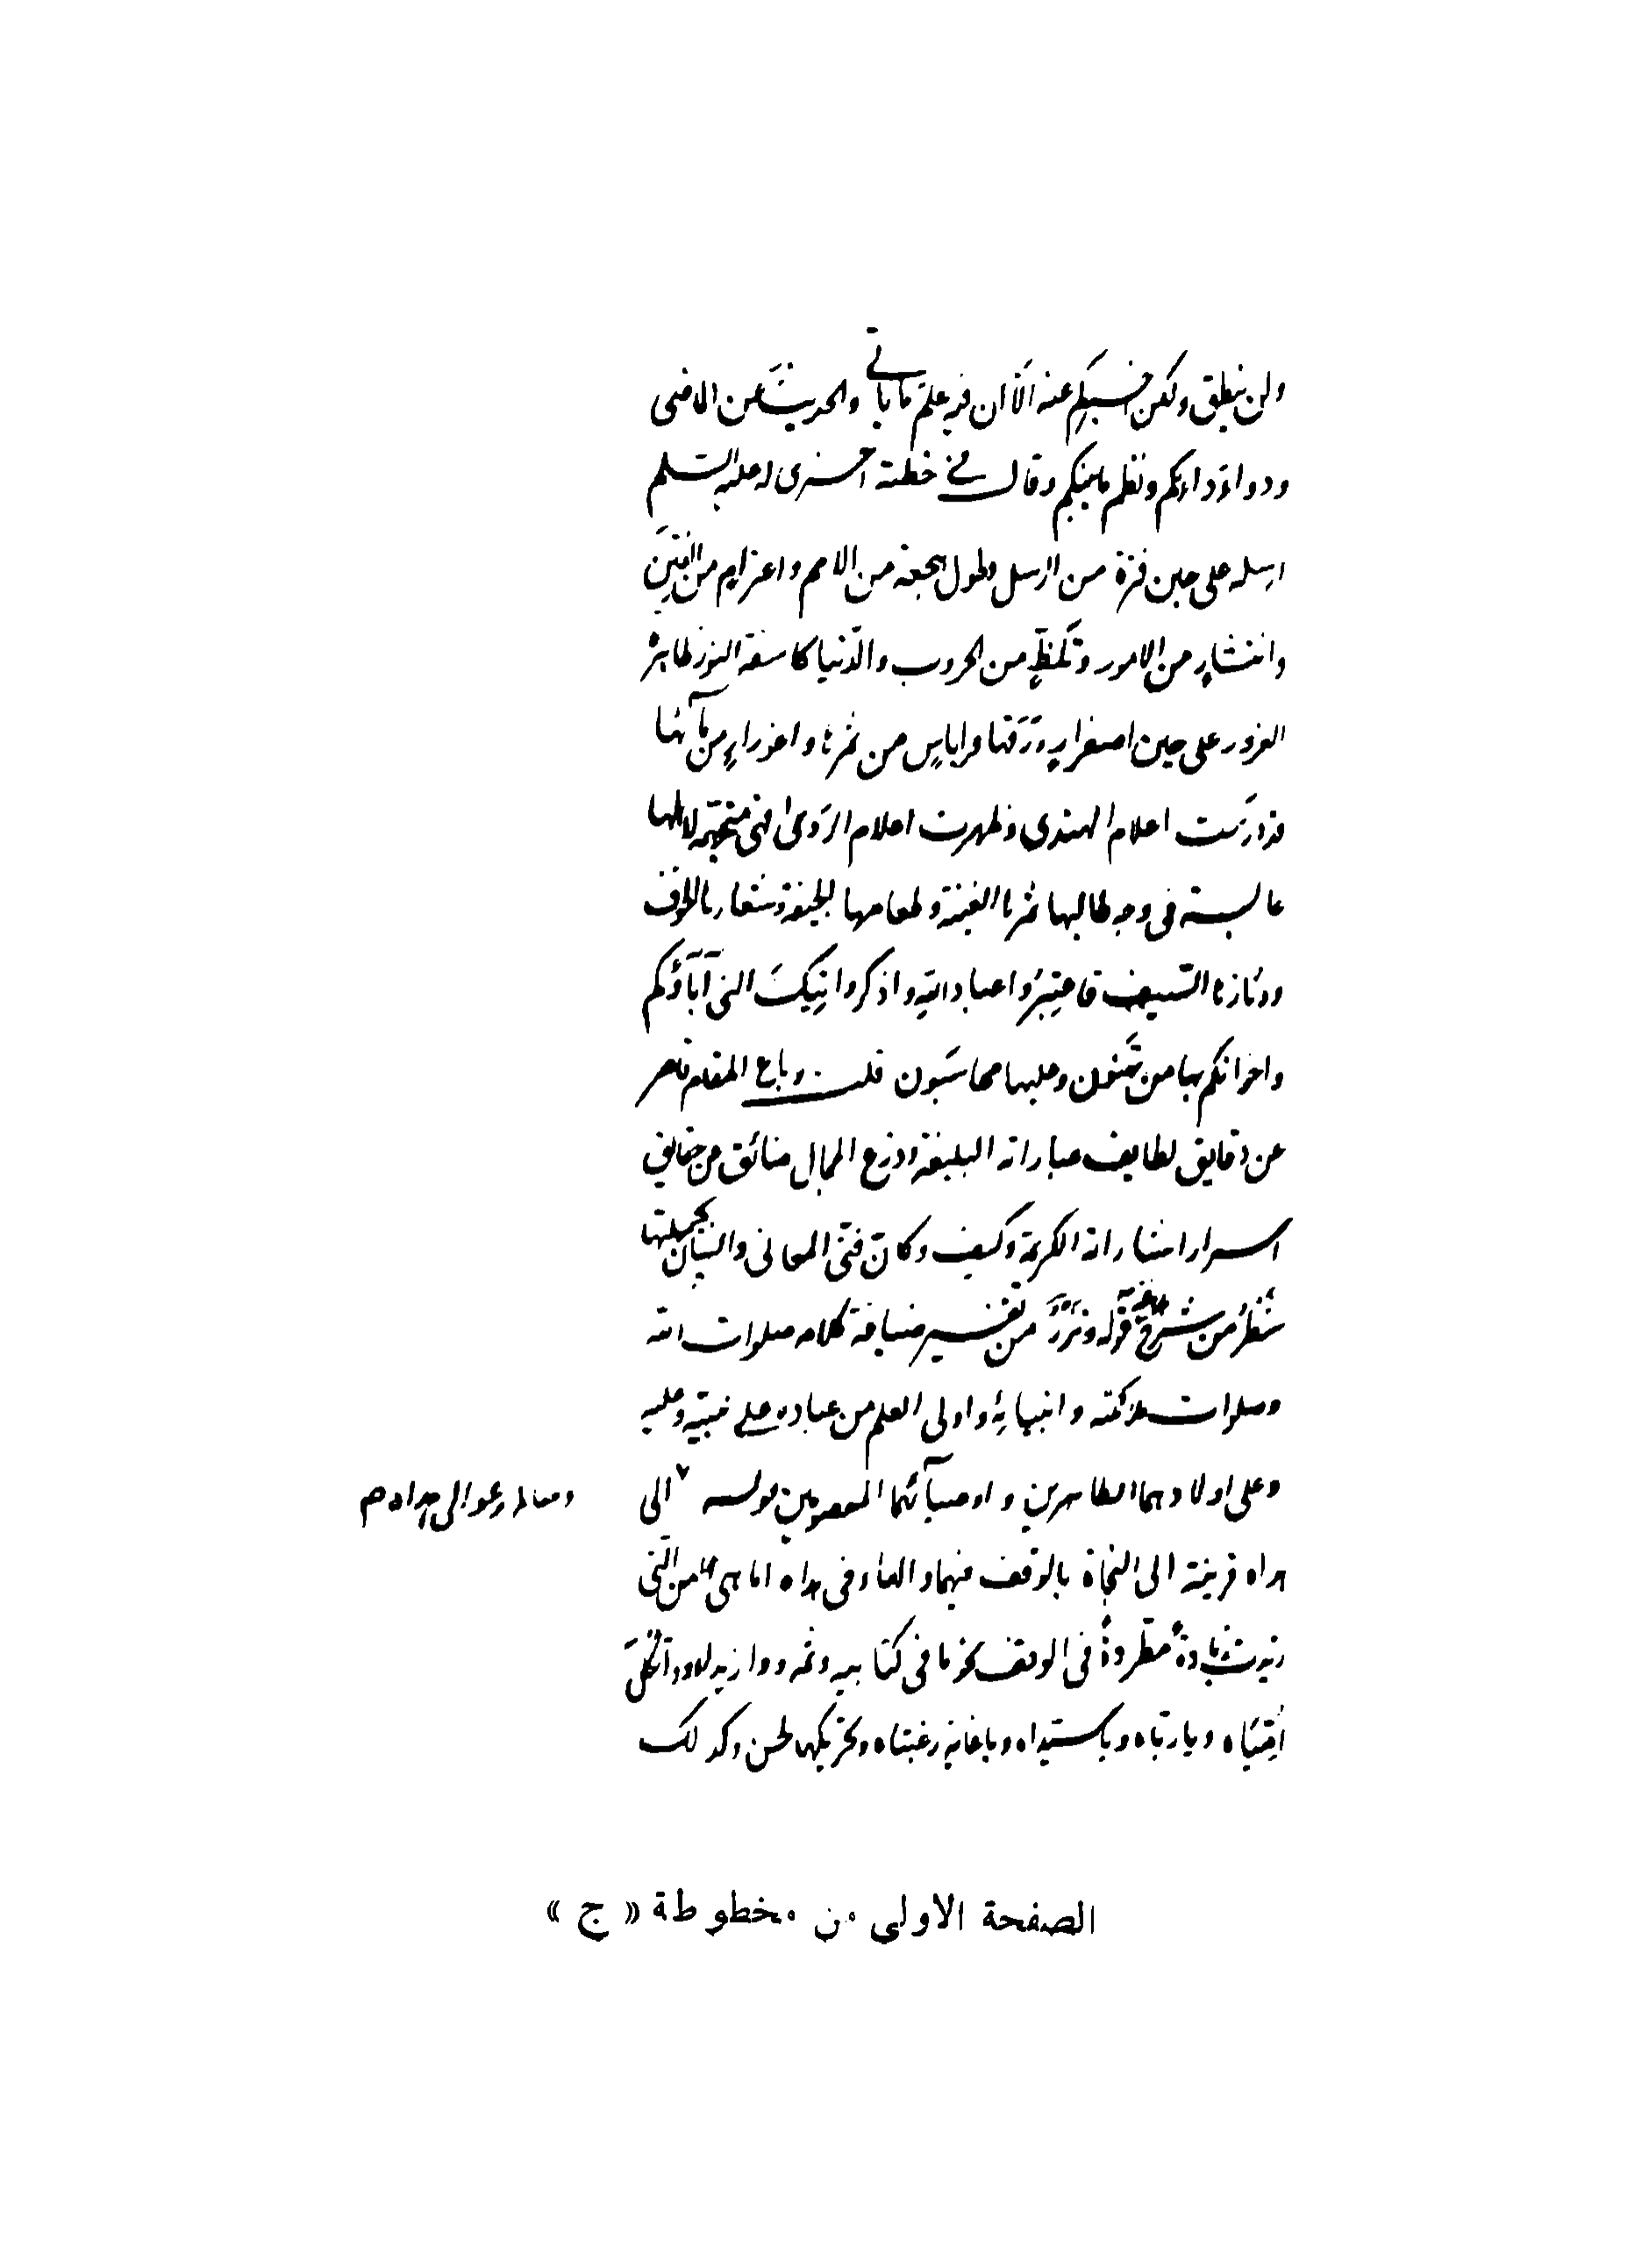 ولن ينطق ولكن اخبركم عنه الا ان فيه علم ما ياتى والحديث عن الماضى
ودواء دائكم ونظم ما بينكم وقال في خطبة اخرى له عليه السلم
ارسله على حين فترة من الرسل وطول هجعة من الامم واعتزام من الفتن
وانتشار من الامور وتلظ من الحروب والدنيا كاسفة النور ظاهرة
الغرور على حين اصفرار من ورقها واياس من ثمرها واغوراء من مآئها
قد درست اعلام الهدى وظهرت اعلام الردى فهى متجهمة لاهلها
عابسة فى وجه طالبها ثمرها الفتنة وطعامها الجيفة وشعارها الخوف
ودثارها السيف فاعتبروا عباد الله واذكروا تيك التى آباؤكم
واخوانكم بها مرتهنون وعليها محاسبون قلت وباع المقام قاصر
عن دقايق لطايف عباراته البليغة وذرع المجال ضائق عن حقايق
اسرار اشاراته الكريمة وكيف وكان فنى المعانى والبيان بجملتها
شطر من شرح بلاغة قوله ونزر من تفسير ضيافة كلامه صلوات الله
وصلوات ملائكته وانبيائه واولى العلم من عباده على نبيه وعليه
وعلى اولادهما الطاهرين واوصيآئهما المعصومين قوله الى
هداه قرينة الى النجاة بالوقف فيهما والهاء فى هداه اما هى من التى
زيدت زيادة مطردة فى الوقف نحو ها فى كتابيه وثمه ووازيداه
يا رباه ويا سيداه ويا غاية رغبتاه وتحريكها لحن وكذلك
الصفحة الاولى من مخطوطة « ج »